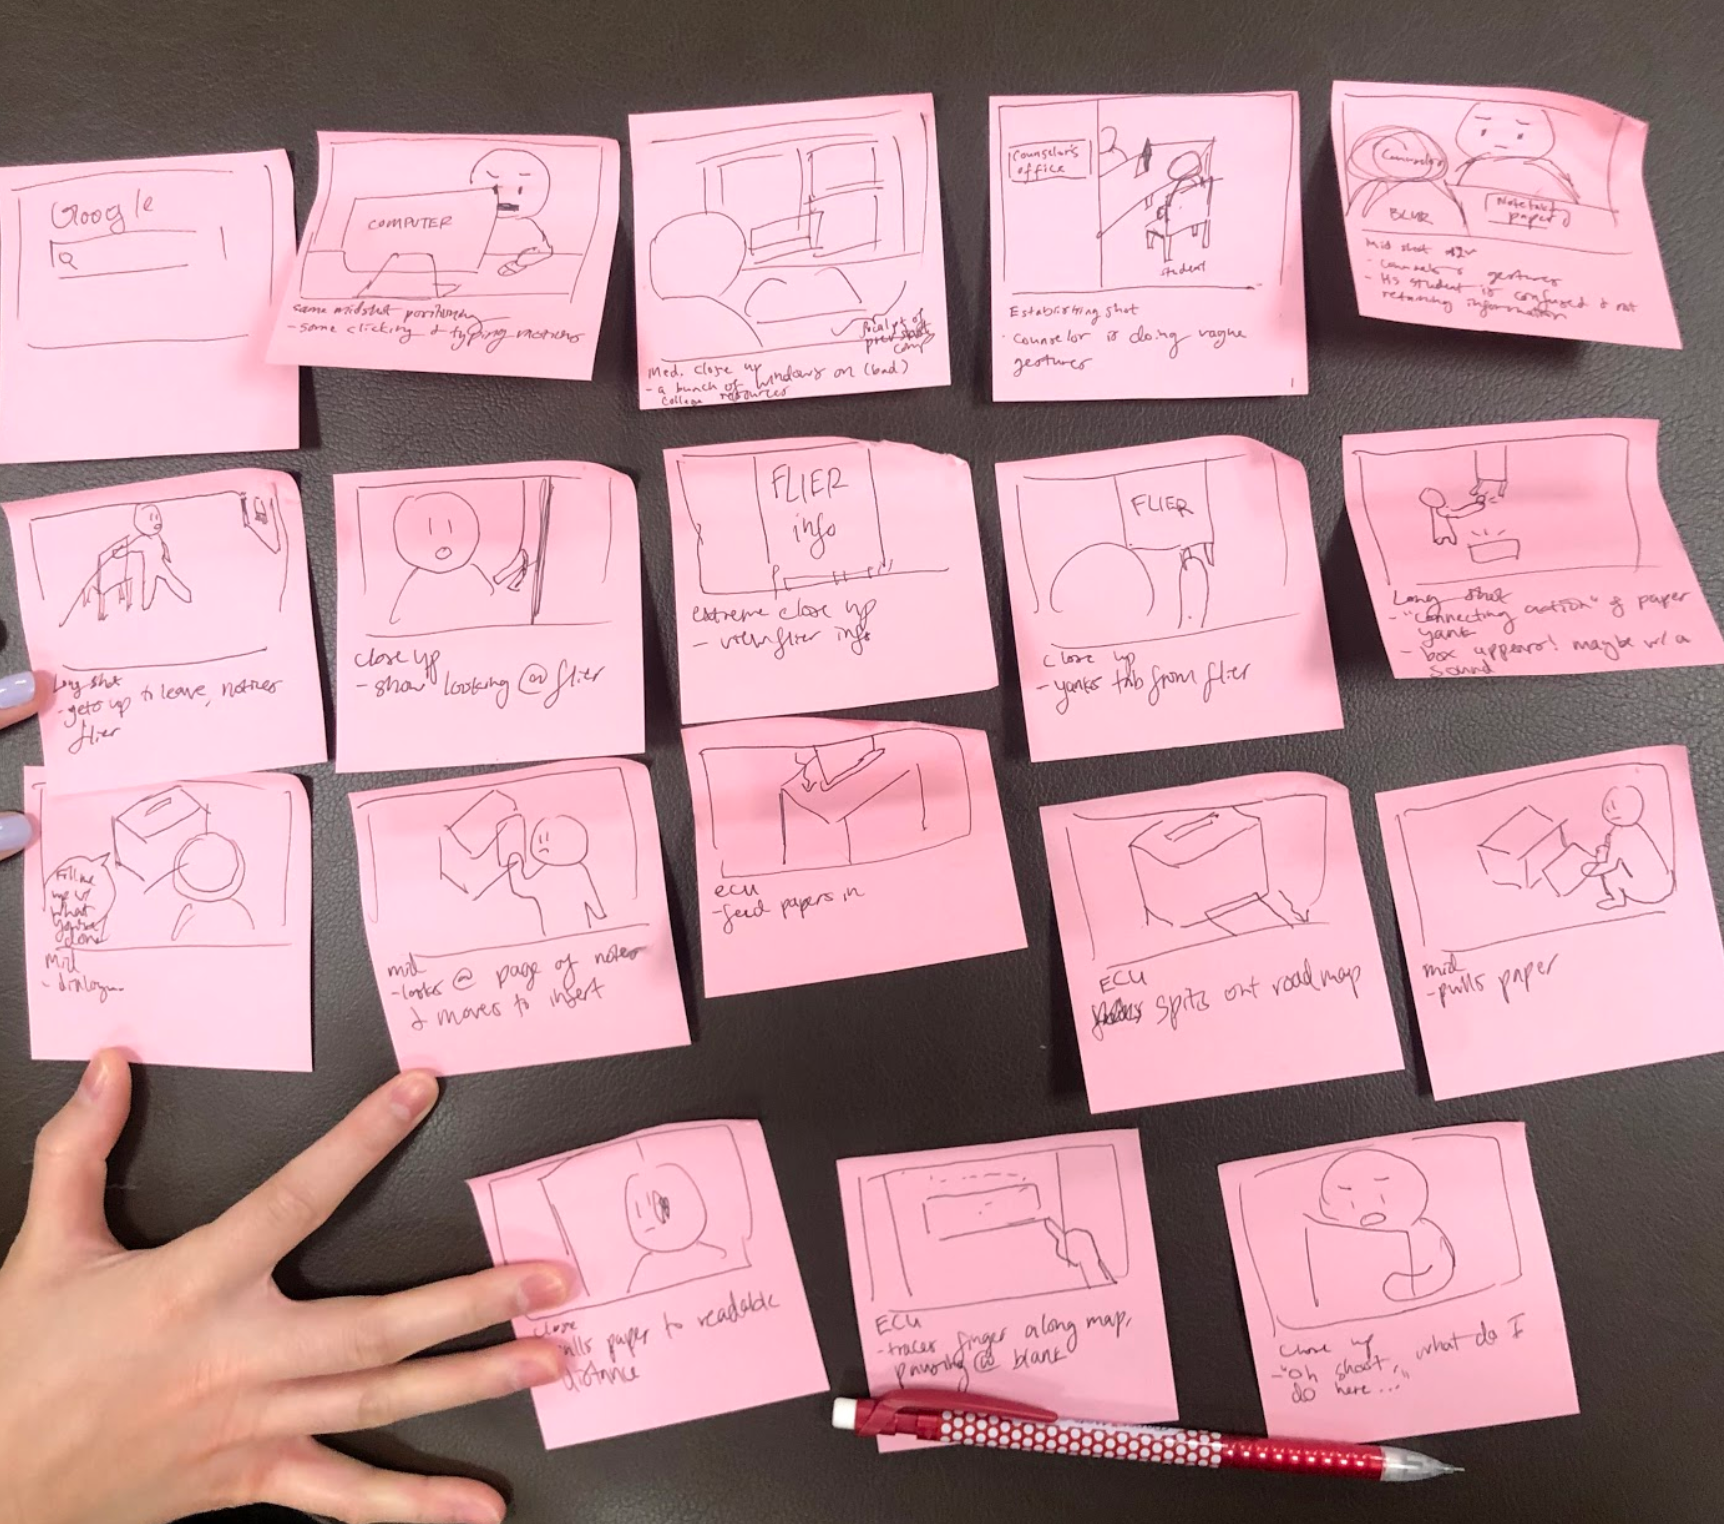 Google
COMPUTER
same midshot
- same clicking & typing motions
Med. close up
- a bunch of windows on (bad)
college resources
Counselor's
office
student
Establishing shot
- counselor is doing vague
gestures
1
Counselor
BLUR
paper
Mid shot
- counselor's gestures
- HS student is confused & not
retaining information
Long shot
- gets up to leave, notices
flier
close up
- show looking @ flier
FLIER
info
extreme close up
- view flier info
FLIER
close up
- yanks tab from flier
Long shot
- "connecting action" of paper
yank
- box appears! maybe w/ a
sound
Fill me
what
you've
done
Mid
- dialogue
mid
- looks @ page of notes
& moves to insert
ECU
- feed papers in
ECU
spits out roadmap
mid
- pulls paper
close
paper to readable
distance
ECU
- traces finger along map,
pausing @ blank
Close up
- "Oh shoot, what do I
do here..."